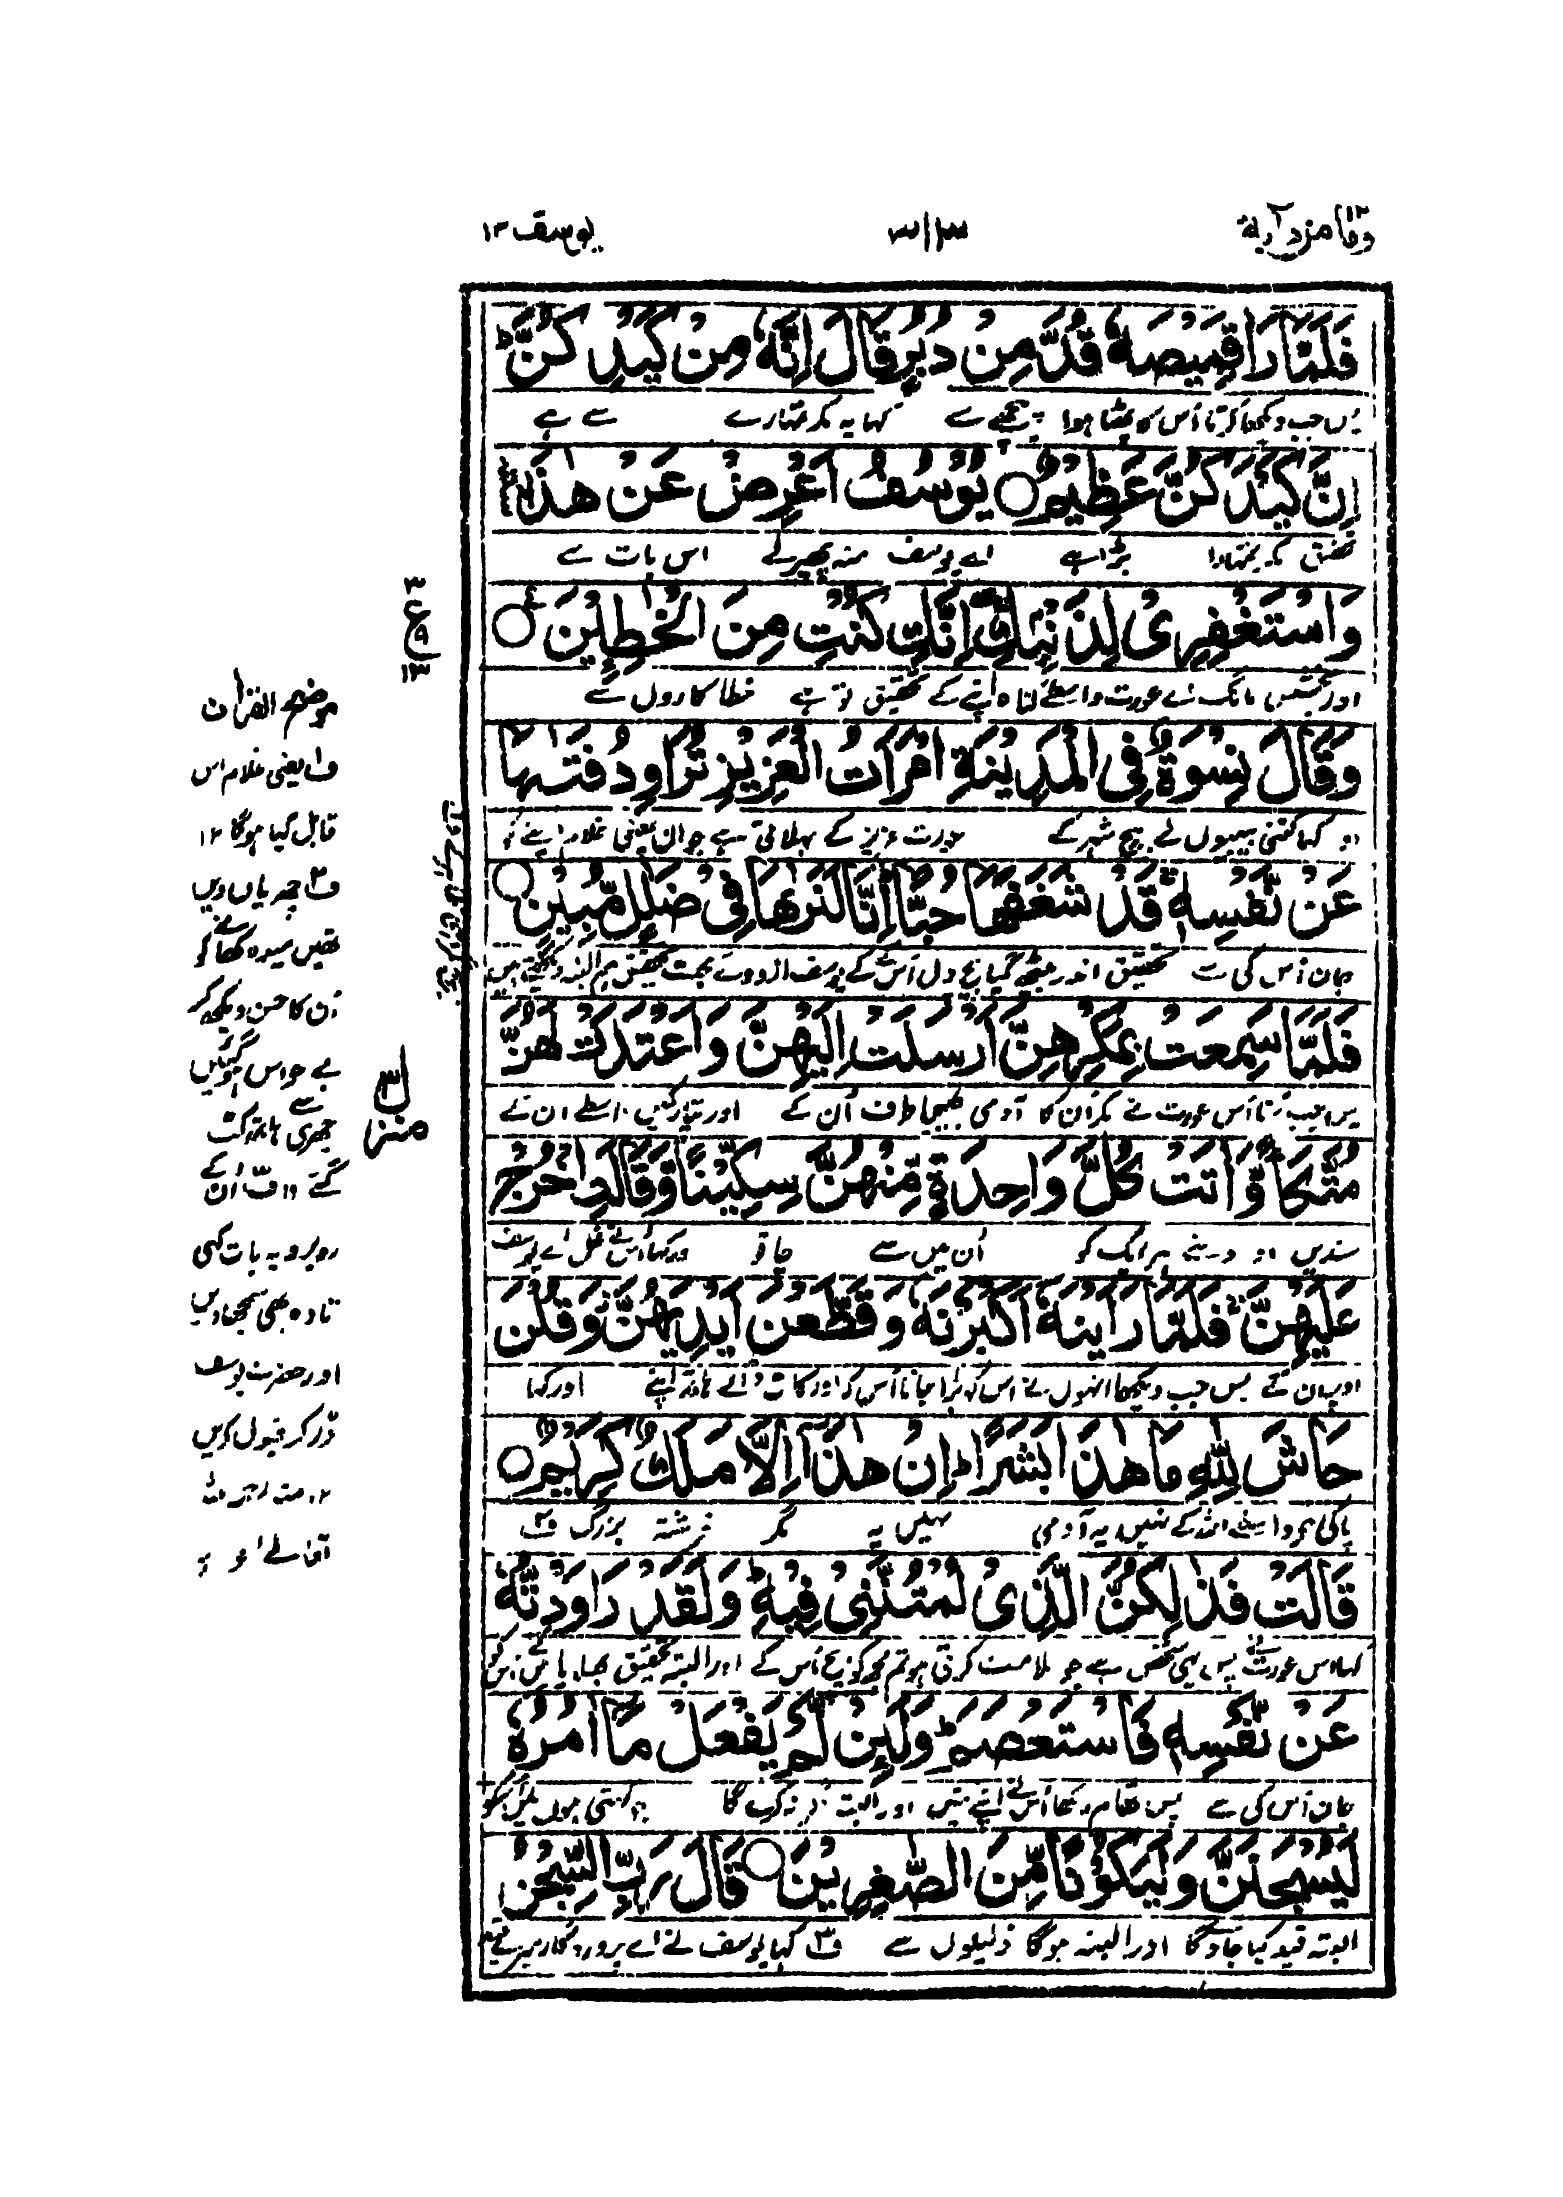 ومامن دآبة ١٢
٣١٣
يوسف ١٢
فَلَمَّا رَاٰ قَمِيْصَهٗ قُدَّ مِنْ دُبُرٍ قَالَ اِنَّهٗ مِنْ كَيْدِكُنَّ ؕ
پس جب دیکھا کرتا اُس کا پھٹا ہوا پیچھے سے کہا یہ مکر تمہارے سے ہے
اِنَّ كَيْدَكُنَّ عَظِيْمٌ ○ يُوْسُفُ اَعْرِضْ عَنْ هٰذَا
تحقیق مکر تمہارا بڑا ہے اے یوسف منہ پھیر لے اس بات سے
وَاسْتَغْفِرِىْ لِذَنْۢبِكِ ۖ اِنَّكِ كُنْتِ مِنَ الْخٰطِـِٕيْنَ ○
اور بخشش مانگ اے عورت واسطے گناہ اپنے کے تحقیق تو ہے خطا کاروں سے
وَقَالَ نِسْوَةٌ فِى الْمَدِيْنَةِ امْرَاَتُ الْعَزِيْزِ تُرَاوِدُ فَتٰىهَا
اور کہا کتنی بیبیوں نے بیچ شہر کے عورت عزیز کے بہلاتی ہے جوان یعنی غلام اپنے کو
عَنْ نَّفْسِهٖ ۚ قَدْ شَغَفَهَا حُبًّا ؕ اِنَّا لَنَرٰىهَا فِىْ ضَلٰلٍ مُّبِيْنٍ ○
جان اُس کی سے تحقیق اندر بیٹھ گیا بیچ دل اُس کے یوسف ازروئے محبت تحقیق ہم البتہ دیکھتے ہیں
فَلَمَّا سَمِعَتْ بِمَكْرِهِنَّ اَرْسَلَتْ اِلَيْهِنَّ وَاَعْتَدَتْ لَهُنَّ
پس جب سنا اُس عورت نے مکر اُن کا آدمی بھیجا طرف اُن کے اور تیار کیں واسطے ان کے
مُتَّكَاً وَّاٰتَتْ كُلَّ وَاحِدَةٍ مِّنْهُنَّ سِكِّيْنًا وَّقَالَتِ اخْرُجْ
مسندیں اور دی نے ہر ایک کو اُن میں سے چاقو اور کہا اُس نے نکل اے یوسف
عَلَيْهِنَّ ۚ فَلَمَّا رَاَيْنَهٗۤ اَكْبَرْنَهٗ وَقَطَّعْنَ اَيْدِيَهُنَّ وَقُلْنَ
اوپر ان کے پس جب دیکھا انہوں نے اس کو بڑا جانا اُس کو اور کاٹ ڈالے ہاتھ اپنے اور کہا
حَاشَ لِلّٰهِ مَا هٰذَا بَشَرًا ؕ اِنْ هٰذَاۤ اِلَّا مَلَكٌ كَرِيْمٌ ○
پاکی ہے واسطے اللہ کے نہیں یہ آدمی نہیں یہ مگر فرشتہ بزرگ ف۲
قَالَتْ فَذٰلِكُنَّ الَّذِىْ لُمْتُنَّنِىْ فِيْهِ ؕ وَلَقَدْ رَاوَدْتُّهٗ
کہا اس عورت نے پس یہی شخص ہے جو ملامت کرتی ہو تم مجھ کو بیچ اُس کے اور البتہ تحقیق بہلایا میں نے اُس کو
عَنْ نَّفْسِهٖ فَاسْتَعْصَمَ ؕ وَلَئِنْ لَّمْ يَفْعَلْ مَاۤ اٰمُرُهٗ
جان اُس کی سے پس تھام رکھا اُس نے اپنے تئیں اور البتہ اگر نہ کرے گا جو کہتی ہوں میں اس کو
لَيُسْجَنَنَّ وَلَيَكُوْنًا مِّنَ الصّٰغِرِيْنَ ○ قَالَ رَبِّ السِّجْنُ
البتہ قید کیا جاوے گا اور البتہ ہوگا ذلیلوں سے ف۳ کہا یوسف نے اے پروردگار میرے قید
٣
ع
٩
١٣
منزل ٣
موضح القرآن
ف۱ یعنی غلام اس
قابل کیا ہوگا ۱۲
ف۲ چھریاں دیں
تھیں میوہ کھانے کو
اُن کا حسن دیکھ کر
بے حواس ہو گئیاں
چھری سے ہاتھ کٹ
گئے ۱۲ ف۳ اُن کے
روبرو یہ بات کہی
تا وہ بھی سمجھا دیں
اور حضرت یوسف
ڈر کر قبول کریں
۱۲ منہ رحمہ اللہ